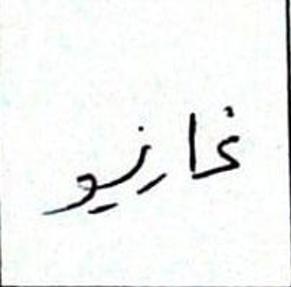 غارنيو